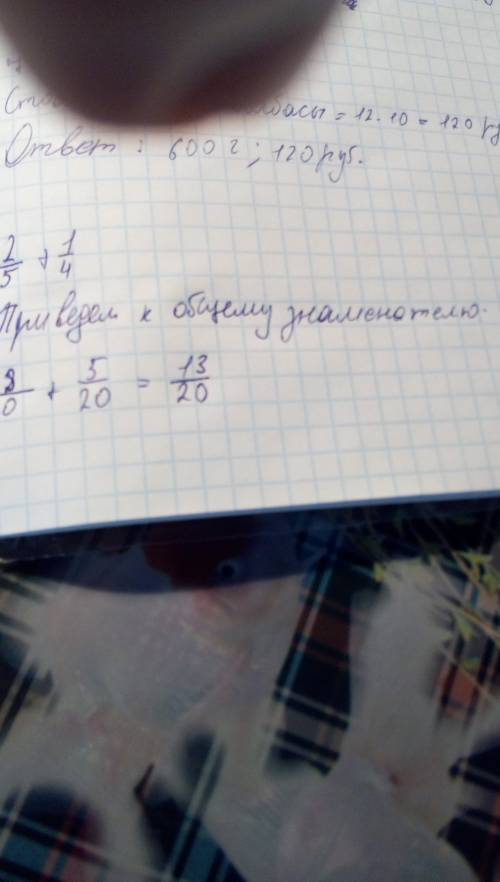 = 12 · 10 = 120
Ответ : 600 г ; 120 руб.
2/5 + 1/4
Приведем к общему знаменателю.
+ 5/20 = 13/20